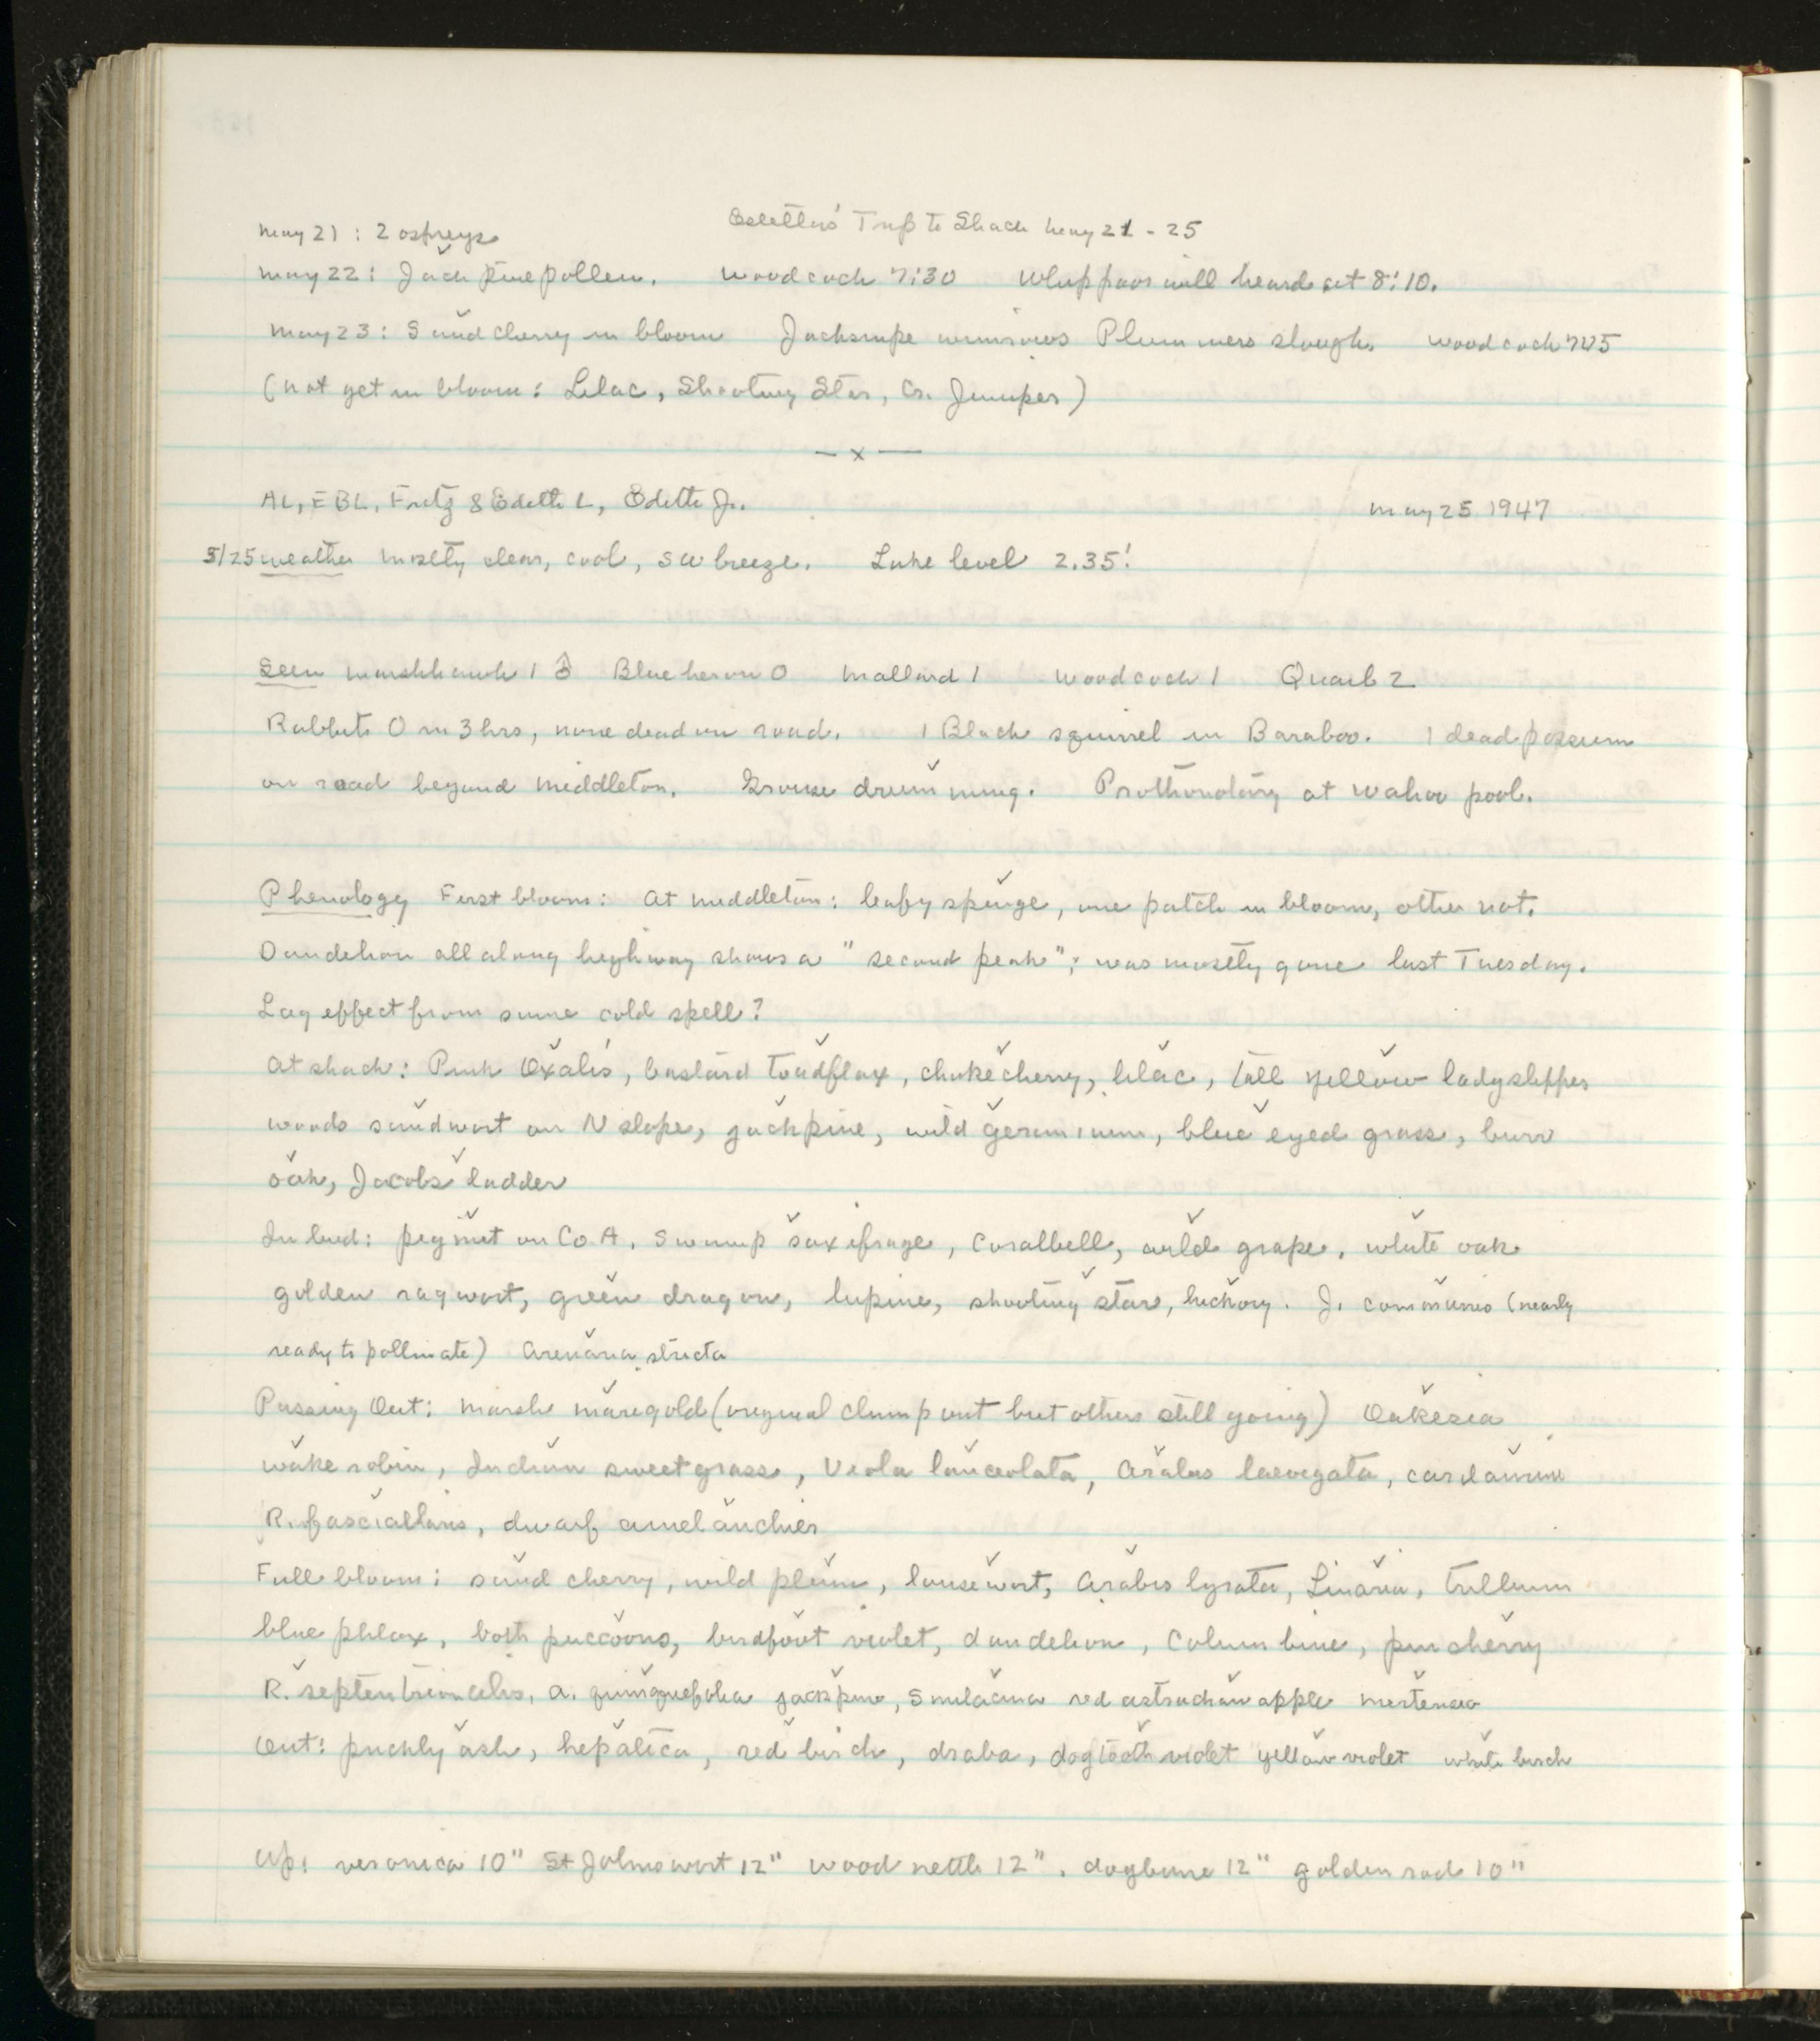 Estella's Trip to Shack May 21 - 25
May 21 : 2 ospreys
May 22 : Jack pine pollen. Woodcock 7:30 Whippoorwill heard at 8:10.
May 23 : Sand cherry in bloom Jacksnipe winnows Plummers slough. Woodcock 725
(not yet in bloom: Lilac, Shooting Star, Cr. Juniper)
— x —
AL, EBL, Fritz & Edith L, Edith Jr. May 25 1947
5/25 Weather mostly clear, cool, SW breeze. Lake level 2.35'
Seen Marshhawk 1 ♂ Blue heron 0 Mallard 1 Woodcock 1 Quail 2
Rabbits 0 in 3 hrs, none dead on road. 1 Black squirrel in Baraboo. 1 dead possum
on road beyond Middleton. Grouse drumming. Prothonotary at Wahoo pool.
Phenology First bloom: At Middleton: leafy spurge, one patch in bloom, other not.
Dandelion all along highway shows a "second peak"; was mostly gone last Tuesday.
Lag effect from some cold spell?
At shack: Pink Oxalis, bastard toadflax, chokecherry, lilac, tall yellow ladyslipper
woods sandwort on N slope, jackpine, wild geranium, blue eyed grass, burr
oak, Jacobs ladder
In bud: pignut on Co A, swamp saxifrage, Coralbell, wild grape, white oak
golden ragwort, green dragon, lupine, shooting star, hickory. J. communis (nearly
ready to pollinate) Arenaria stricta
Passing Out: Marsh marigold (original clump out but others still going) Oakesia
wake robin, Indian sweetgrass, Viola lanceolata, Arabis laevigata, cardamine
R. fascicularis, dwarf amelanchier
Full bloom: sand cherry, wild plum, lousewort, Arabis lyrata, Linaria, trillium
blue phlox, both puccoons, birdfoot violet, dandelion, Columbine, pin cherry
R. septentrionalis, A. quinquefolia jackpine, Smilacina red astrachan apple mertensia
Out: prickly ash, hepatica, red birch, draba, dogtooth violet yellow violet white birch
Up: veronica 10" St Johnswort 12" wood nettle 12". dogbane 12" goldenrod 10"